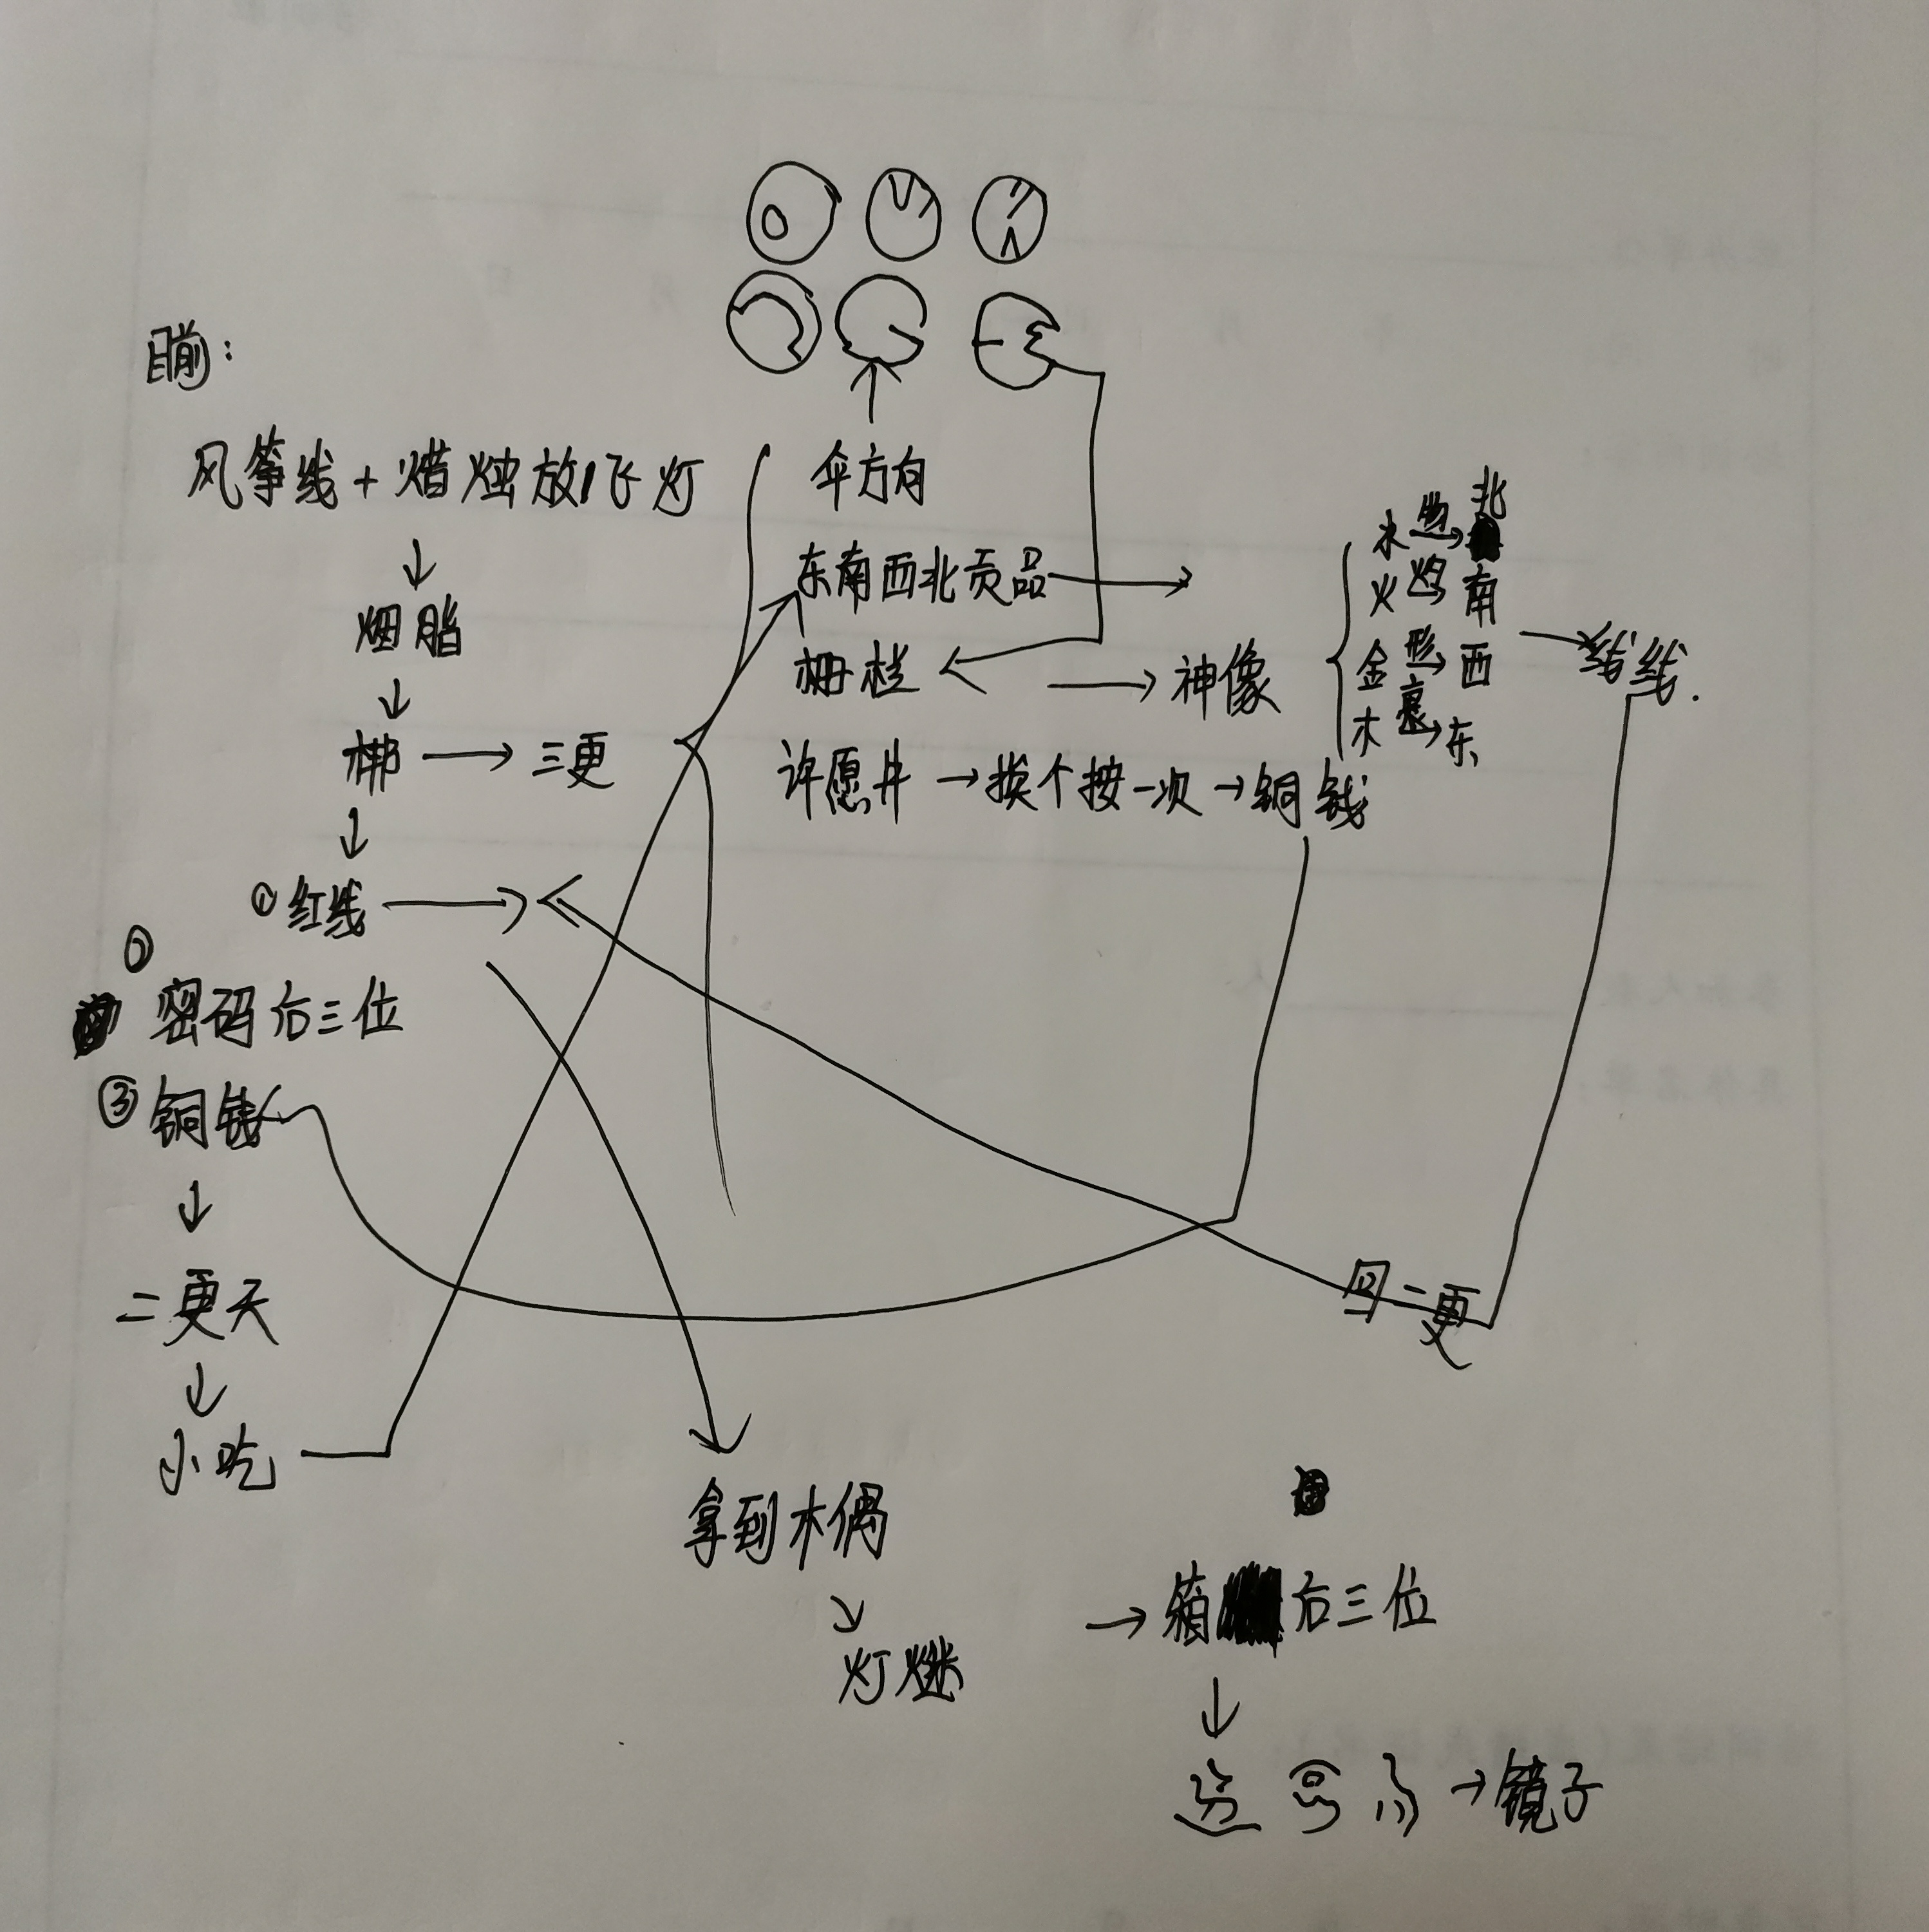 目前:
风筝线+蜡烛放飞灯
↓
烟脂
↓
梳→三更
↓
①红线→
①
密码后三位
③铜钱
↓
二更天
↓
小吃
伞方向
东南西北贡品→
栅栏 →神像
许愿井→挨个按一次→铜钱
水 →北
火 鸡 南
金 →西
木 →东
→线.
回二更
拿到木偶
↓
灯
→箱后三位
↓
→镜子